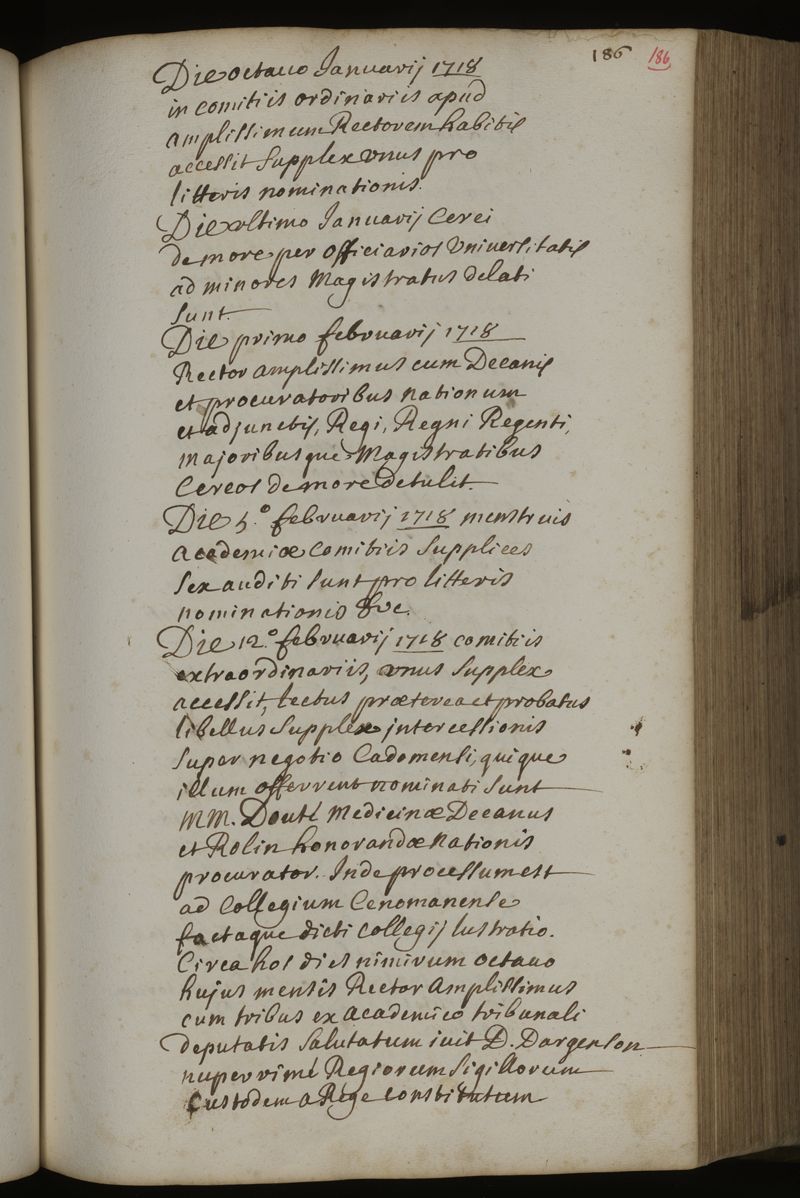 186 186
Die octauo Januarij 1718
in comitiis ordinariis apud
amplissimum Rectorem habitis
accessit supplex vnus pro
litteris nominationis.
Die vltimo Januarij Cerei
de more per officiarios Vniversitatis
ad minores Magistratus delati
sunt.
Die primo februarij 1718
Rector amplissimus cum Decanis
et procuratoribus nationum
et adjunctis, Regi, Regni Regenti,
majoribusque Magistratibus
Cereos de more detulit.
Die 5.º februarij 1718 menstruis
academiæ comitiis supplices
sex auditi sunt pro litteris
nominationis &c.
Die 12.º februarij 1718 comitiis
extraordinariis, vnus supplex
accessit, lectus præterea et probatus
libellus supplex intercessionis
super negotio Cadomensi, quique
illum offerrent nominati sunt
MM. Douté Medicinæ Decanus
et Rolin honorandæ Nationis
procurator. Inde processum est
ad Collegium Cenomanense
factaque dicti collegij lustratio.
Circa hos dies nimirum octauo
hujus mensis Rector Amplissimus
cum tribus ex academico tribunali
deputatis salutatum iuit D. Dargenson
nuperrimè Regiorum Sigillorum
Custodem a Rege constitutum